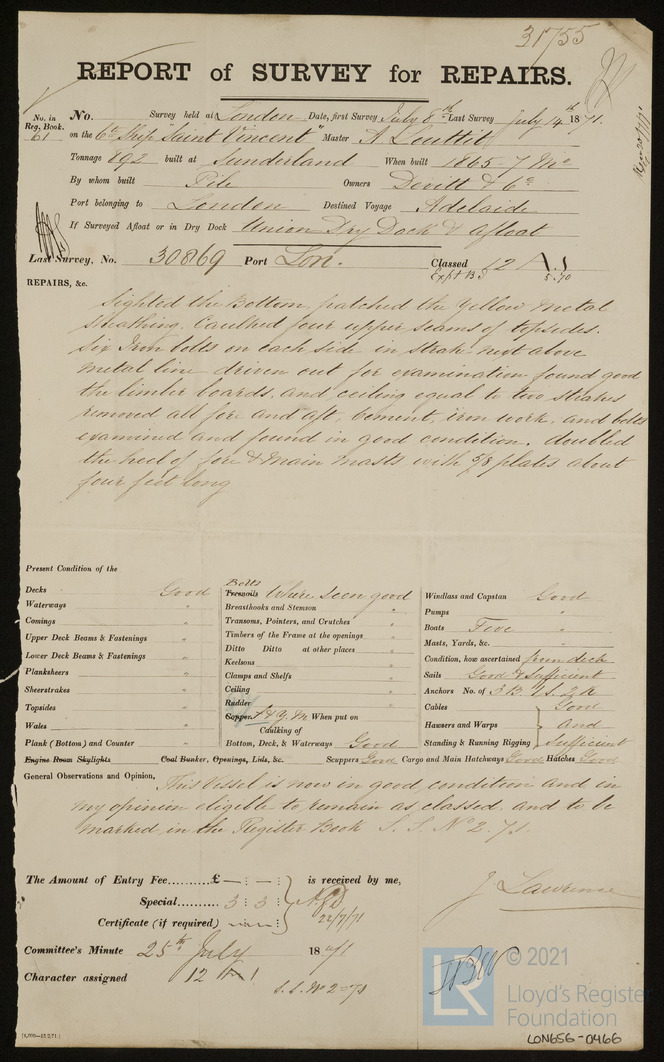 31755
REPORT of SURVEY for REPAIRS.
No. in Reg. Book. 61
No. Survey held at London Date, first Survey July 8th Last Survey July 14th 1871.
on the Co. Ship "Saint Vincent" Master A Louttit
Tonnage 892 built at Sunderland When built 1865-7 Mo
By whom built Pile Owners Devitt & Co
Port belonging to London Destined Voyage Adelaide
If Surveyed Afloat or in Dry Dock Union Dry Dock & afloat
Last Survey, No. 30869 Port Lon. Classed 12 A.1
5.70
REPAIRS, &c.
Sighted the Bottom, patched the Yellow Metal
Sheathing. Caulked four upper seams of topsides.
Six Iron bolts on each side in strake next above
metal line driven out for examination found good
the limber boards, and ceiling equal to two strakes
removed all fore and aft, cement, iron work, and bolts
examined and found in good condition. doubled
the heel of fore & main masts with 5/8 plates about
four feet long
Present Condition of the
Decks Good
Waterways "
Comings "
Upper Deck Beams & Fastenings "
Lower Deck Beams & Fastenings "
Planksheers "
Sheerstrakes "
Topsides "
Wales "
Plank (Bottom) and Counter "
Engine Room Skylights
Bolts
Treenails Where seen good
Breasthooks and Stemson "
Transoms, Pointers, and Crutches "
Timbers of the Frame at the openings "
Ditto Ditto at other places "
Keelsons "
Clamps and Shelfs "
Ceiling "
Rudder "
Copper F & Y.M When put on
Caulking of
Bottom, Deck, & Waterways Good
Coal Bunker, Openings, Lids, &c.
Windlass and Capstan Good
Pumps "
Boats Five "
Masts, Yards, &c. "
Condition, how ascertained from deck
Sails Good & Sufficient
Anchors No. of 3 B. 1 S. 2 K
Cables Good
Hawsers and Warps and
Standing & Running Rigging Sufficient
Scuppers Good Cargo and Main Hatchways Good Hatches Good
General Observations and Opinion, This Vessel is now in good condition and in
my opinion eligible to remain as classed, and to be
marked in the Register Book S. S. No 2-71.
The Amount of Entry Fee.........£ — : — : is received by me,
Special......... 3 : 3 :
22/7/71
Certificate (if required)
J Lawrence
Committee's Minute 25th July 1871
Character assigned 12 A 1
S.S. No 2-71
© 2021
LR
Lloyd's Register
Foundation
LON656-0466